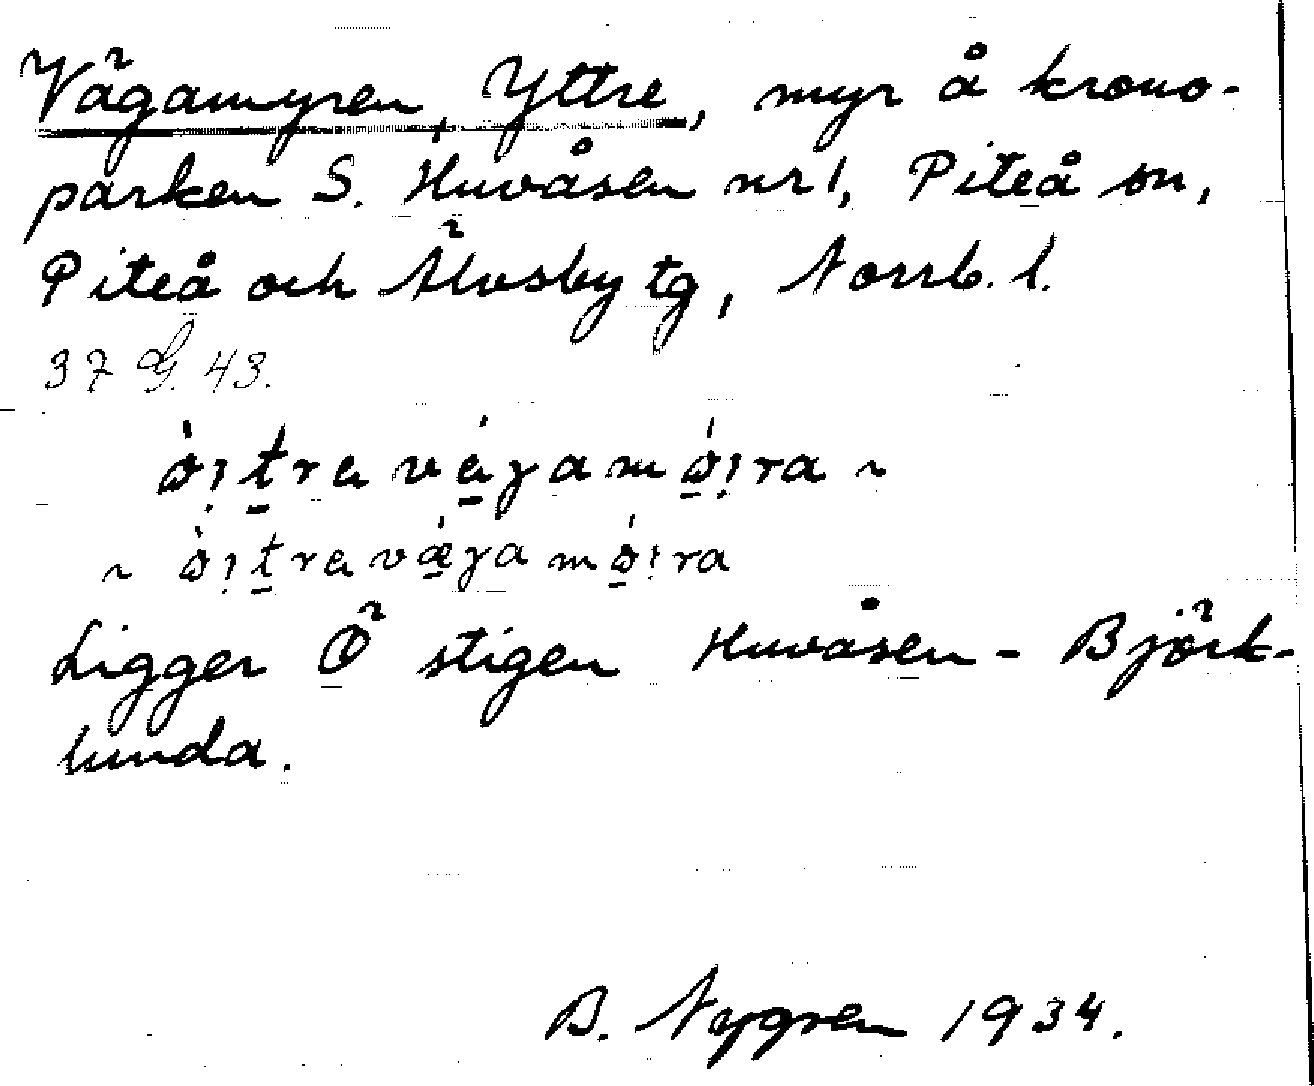 Vägamyren, Yttre, myr å krono-
parken S. Huvåsen nr 1, Piteå sn,
Piteå och Älvsby tg, Norrb. l.
37 G. 43.
Ligger Ö stigen Huvåsen - Björk-
lunda.
B. Nygren 1934.